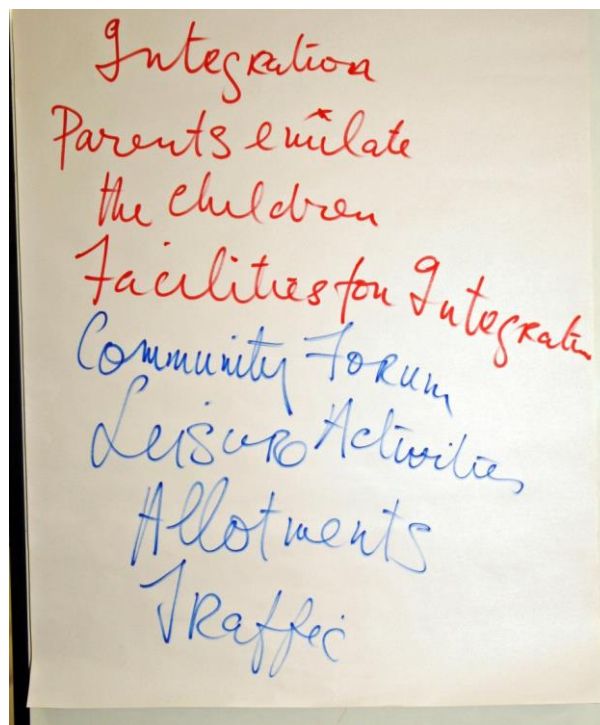 Integration
Parents emulate
the children
Facilities for Integration
Community Forum
Leisure Activities
Allotments
Traffic